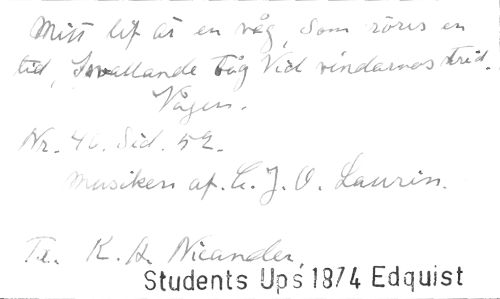 Mitt lif är en våg, som röres en
tid, Svallande tåg Vid vindarnas strid.
Vågen.
Nr. 40. Sid. 52.
Musiken af C. J. O. Laurin.
Tx. K. A. Nicander.
Students Ups 1874 Edquist